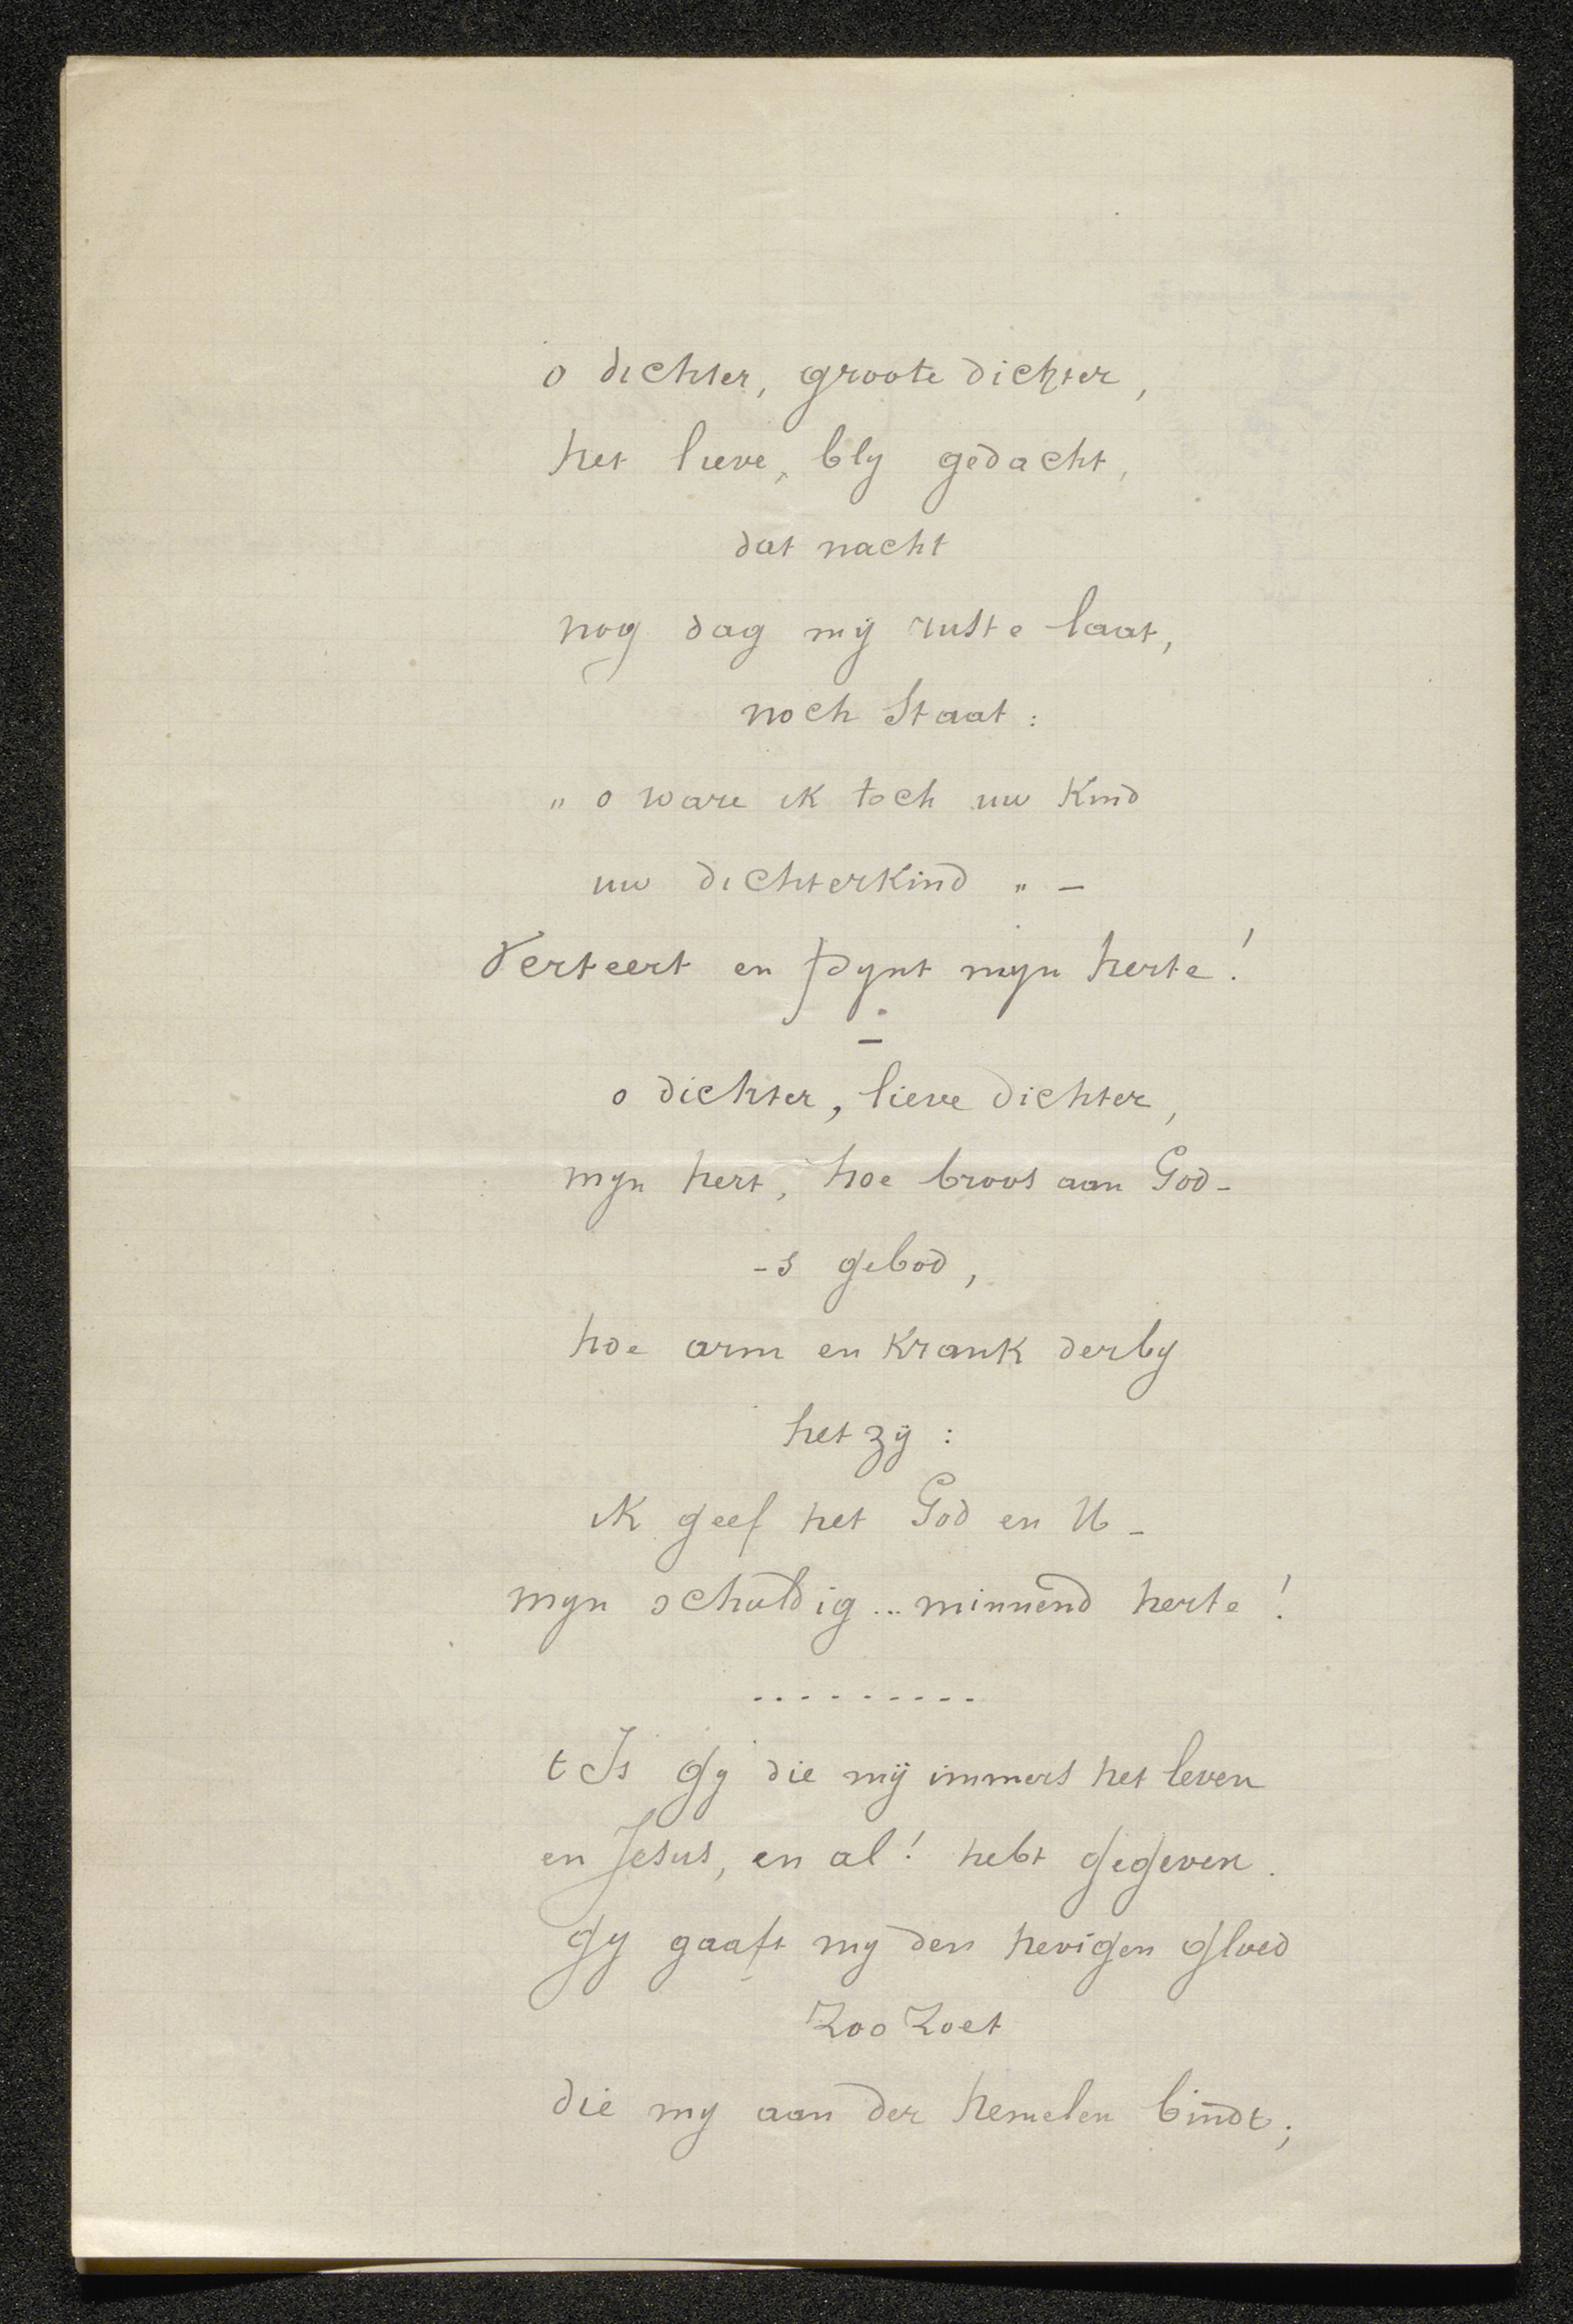 o dichter, groote dichter,
het lieve, bly gedacht,
dat nacht
nog dag mij ruste laat,
noch staat:
" o ware ik toch uw kind
uw dichterkind " -
Verteert en pynt myn herte!
-
o dichter, lieve dichter,
myn hert, hoe broos aan God-
-s gebod,
hoe arm en krank derby
het zij:
ik geef het God en U -
myn schuldig... minnend herte!
.........
t Is Gy die mij immers het leven
en Jesus, en al! hebt gegeven.
Gy gaaft my den hevigen gloed
Zoo Zoet
die my aan der hemelen bindt;